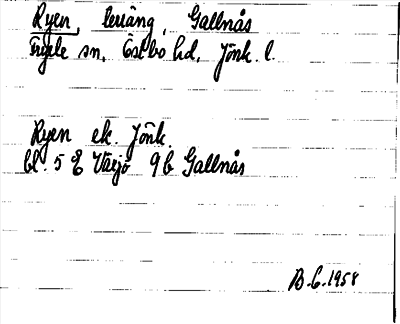 Ryen, beräng, Gallnås
Fryele sn, Östbo hd, Jönk. l.
Ryen ek. Jönk.
bl. 5 E Växjö 9 b Gallnås
B. G. 1958